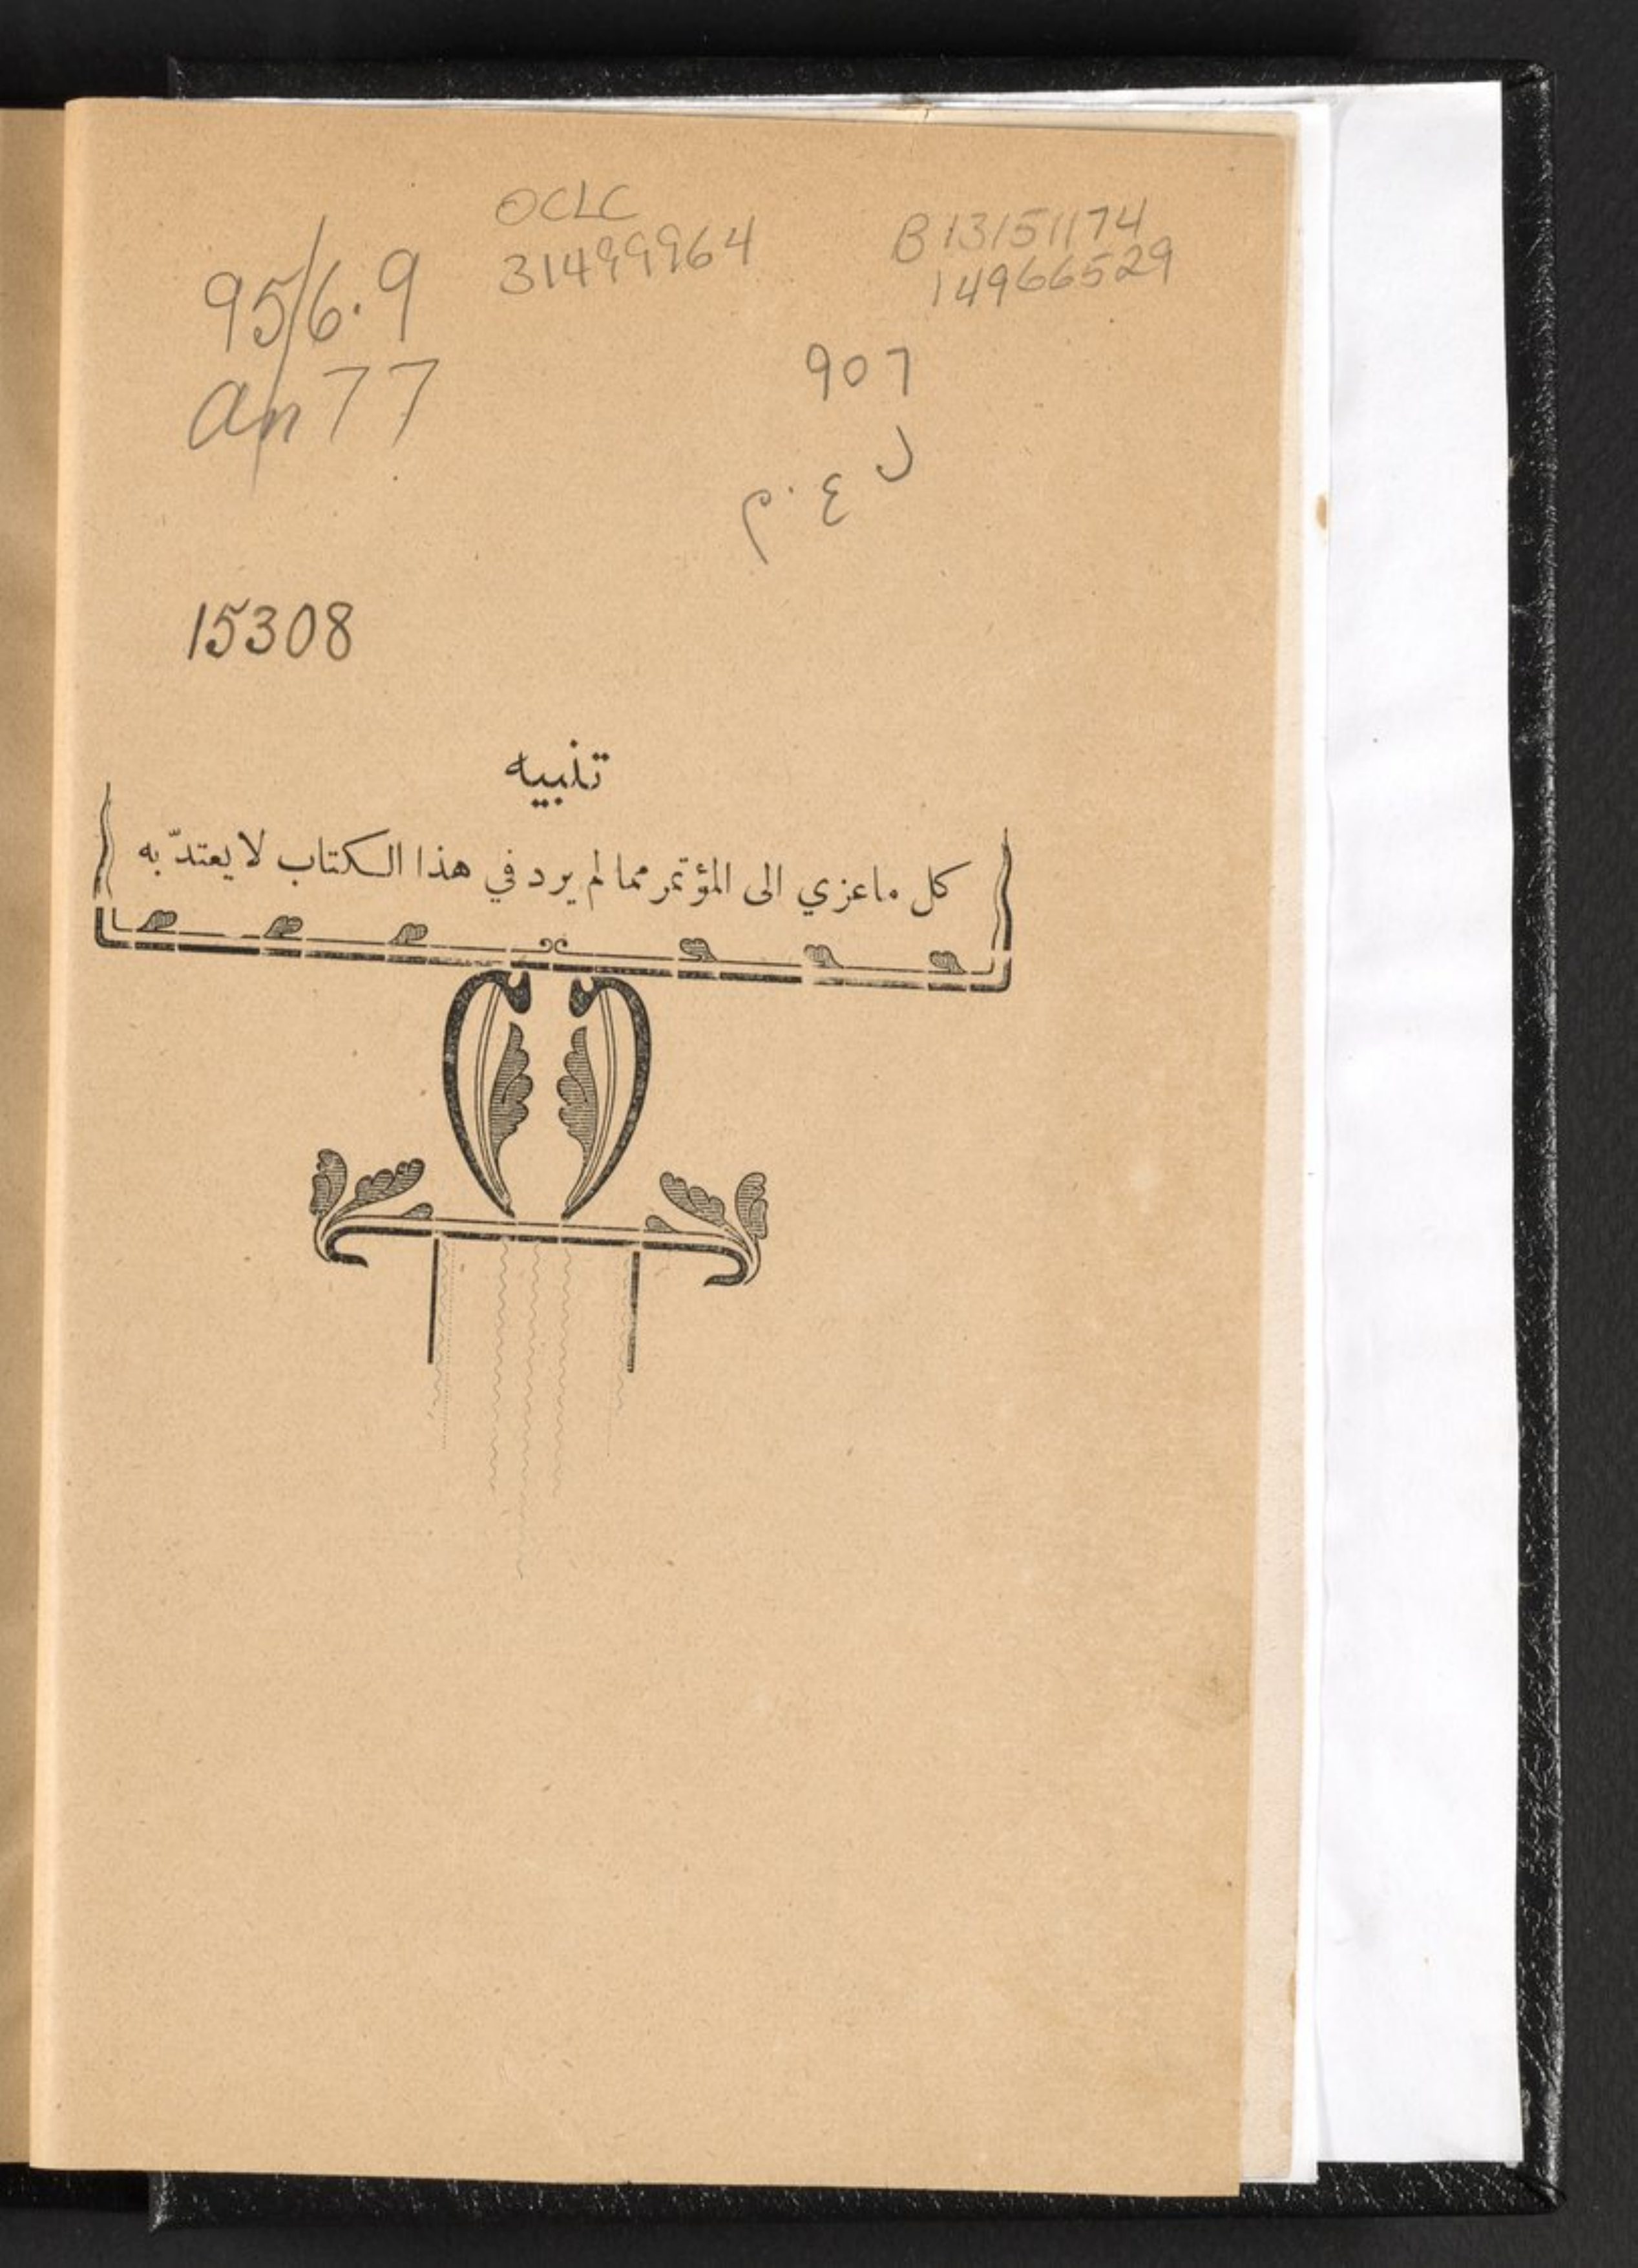 OCLC
31499964
B13151174
14966529
956.9
an77
907
ل
م.ع
15308
تنبيه
كل ماعزي الى المؤتمر مما لم يرد في هذا الكتاب لا يعتدّ به